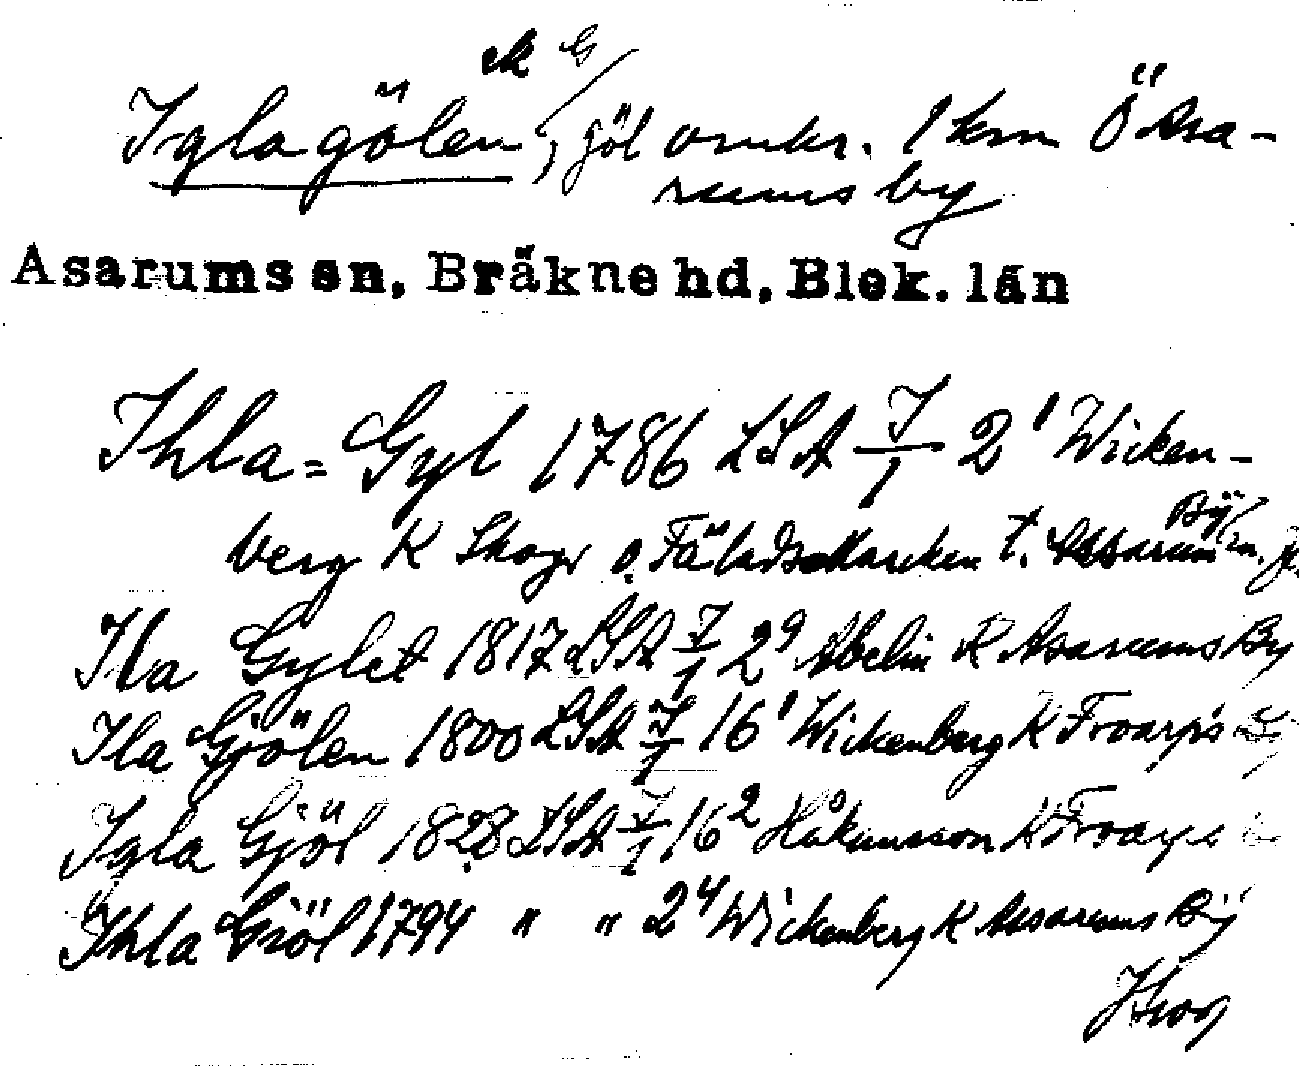 ek G
Iglagölen, göl omkr. 1 km Ö Asa-
rums by
Asarums sn, Bräkne hd, Blek. län
Ihla=Gyl 1786 LSA I/1 2¹ Wicken-
berg K Skogs o. Fäladsmarken t. Assarum By
Ila Gylet 1817 LSA I/1 2⁹ Abelin K Asarums By
Ila Gjölen 1800 LSA I/1 16¹ Wickenberg K Froarps
Igla Gjöl 1828 LSA I/1 16² Håkansson K Froarps
Ihla Giöl 1794 " " 2⁴ Wickenberg K Assarums Bÿ